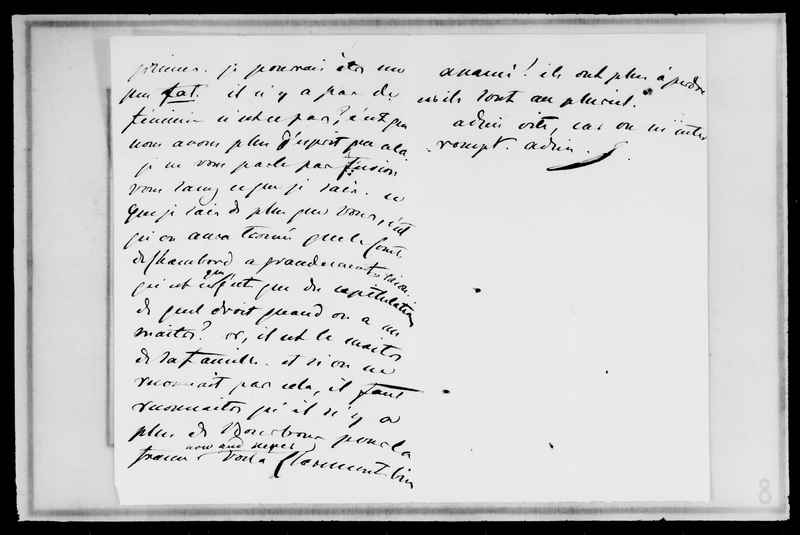 je pourrais être un
peu fat. il n'y a pas de
féminin n'est ce pas? c'est que
nous avons plus d'esprit que cela
je ne vous parle pas fusion
vous savez ce que je sais. ce
que je sais de plus que vous, c'est
qu'on aura trouvé que le comte
de Chambord a grandement
qu'est ce que c'est que des capitulations
de quel droit quand on a un
maître? or, il est le maître
de sa famille. et si on ne
reconnait pas cela, il faut
reconnaitre qu'il n'y a
plus de Bourbons pour la
france now and never voilà Claremont bien
! ils ont plus à perdre
ils sont au pluriel.
adieu vite, car on m'inter
rompt. adieu. S.
8